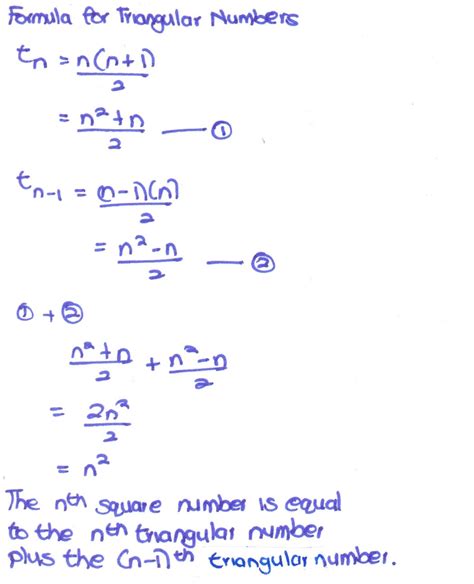 Formula for Triangular Numbers
tₙ = n(n+1)/2
= n²+n/2 — ①
tₙ₋₁ = (n-1)(n)/2
= n²-n/2 — ②
① + ②
n²+n/2 + n²-n/2
= 2n²/2
= n²
The nth square number is equal
to the nth triangular number
plus the (n-1)th triangular number.